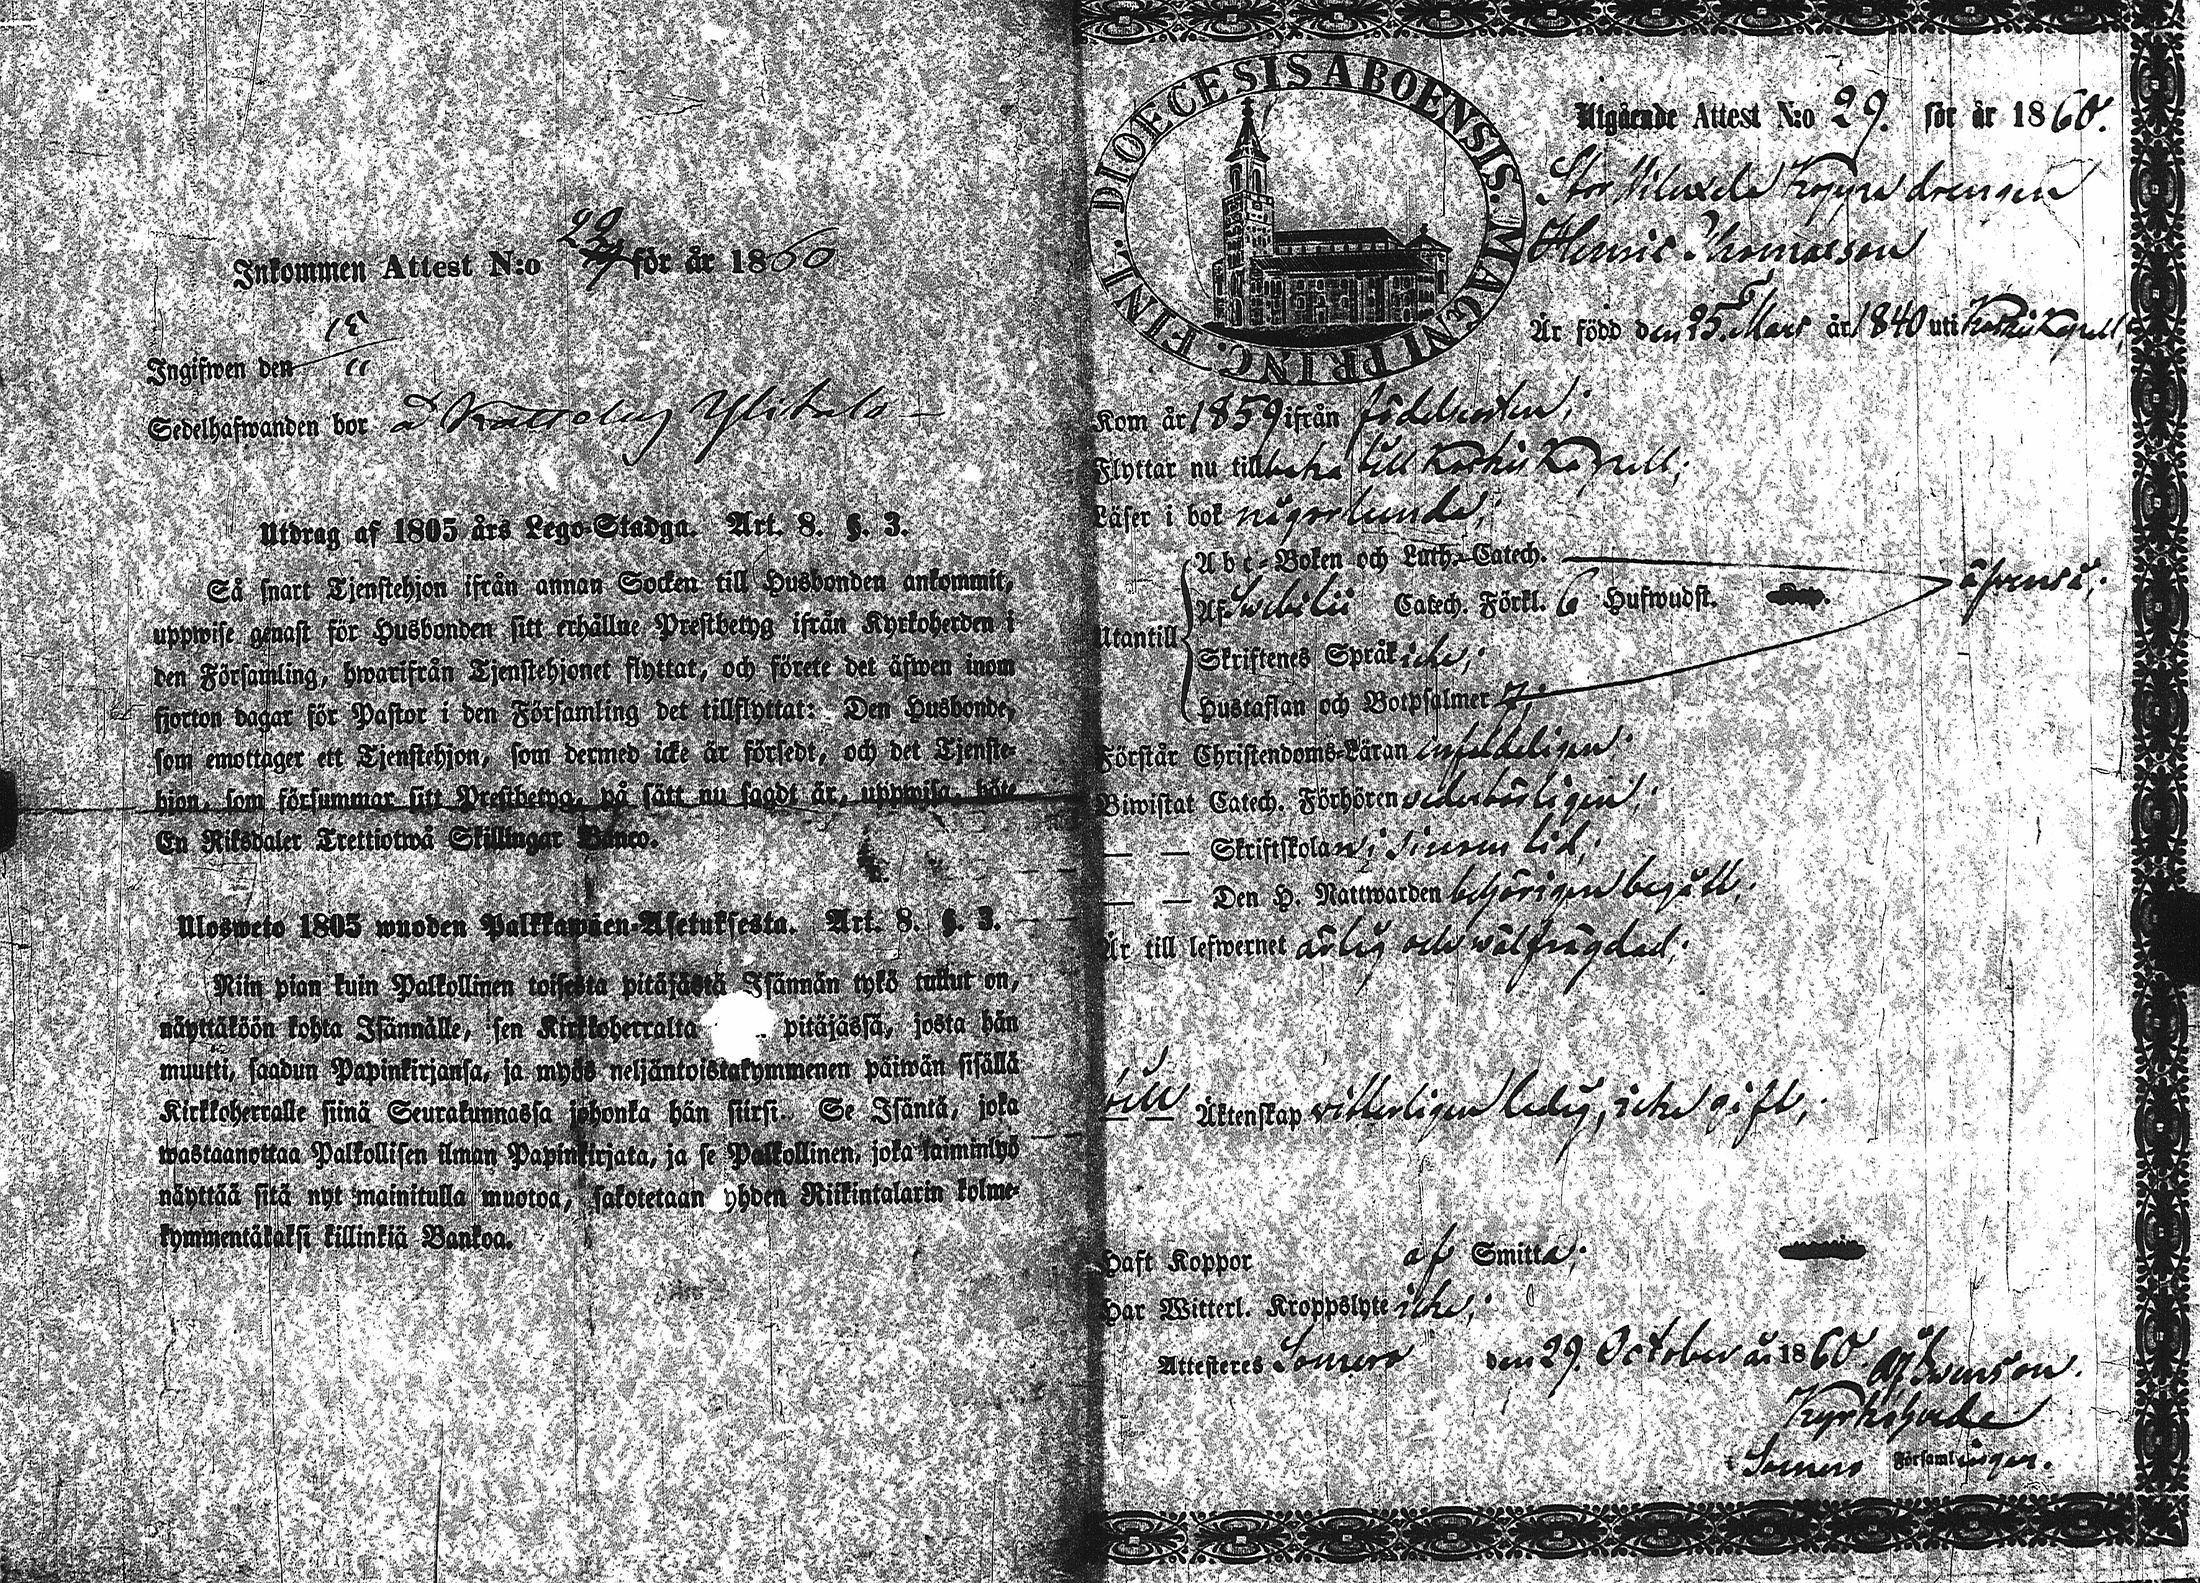 Inkommen Attest N:o 29 för år 1860
Ingifwen den 13/11
Sedelhafwanden bor å Ylitalo
Utdrag af 1805 års Lego-Stadga. Art. 8. §. 3.
Så snart Tjenstehjon ifrån annan Socken till Husbonden ankommit,
uppwise genast för Husbonden sitt erhållne Prestbetyg ifrån Kyrkoherden i
den Församling, hwarifrån Tjenstehjonet flyttat, och förete det äfwen inom
fjorton dagar för Pastor i den Församling det tillflyttat: Den Husbonde,
som emottager ett Tjenstehjon, som dermed icke är försedt, och det Tjenste-
hjon, som försummar sitt Prestbetyg, på sätt nu sagdt är, uppwisa, böte
En Riksdaler Trettiotwå Skillingar Banco.
Ulosweto 1805 wuoden Palkkawäen-Asetuksesta. Art. 8. §. 3.
Niin pian kuin Palkollinen toisesta pitäjästä Isännän tykö tullut on,
näyttäköön kohta Isännälle, sen Kirkkoherralta pitäjässä, josta hän
muutti, saadun Papinkirjansa, ja myös neljäntoistakymmenen päiwän sisällä
Kirkkoherralle siinä Seurakunnassa johonka hän siirsi. Se Isäntä, joka
wastaanottaa Palkollisen ilman Papinkirjata, ja se Palkollinen, joka laiminlyö
näyttää sitä nyt mainitulla muotoa, sakotetaan yhden Riikintalarin kolme-
kymmentäkaksi killinkiä Bankoa.
DIOECESIS ABOENSIS. MAGNI PRINC. FINL.
Utgående Attest N:o 29. för år 1860.
Stor Wiluxela drengen
Henric Thomasson
Är född den 25 Mars år 1840 uti Koskis Kapell,
Kom år 1859 ifrån födelseorten;
Flyttar nu tillbaka till Koskis Kapell;
Läser i bok någorlunda;
Utantill
Abc-Boken och Luth. Catech.
Af Swebilii Catech. Förkl. 6 Hufwudst.
äfwenså;
Skriftenes Språk icke;
Hustaflan och Botpsalmer 7;
Förstår Christendoms-Läran enfaldeligen;
Biwistat Catech. Förhören wederbörligen;
— — Skriftskolan i sinom tid;
— — Den H. Nattwarden behörigen begått;
Är till lefwernet ärlig och wälfrägdad;
till Äktenskap witterligen ledig, icke gift;
Haft Koppor af Smitta;
Har Witterl. Kroppslyte icke;
Attesteres Somero den 29. October år 1860.
Kyrkoherde
Somero Församlingen.